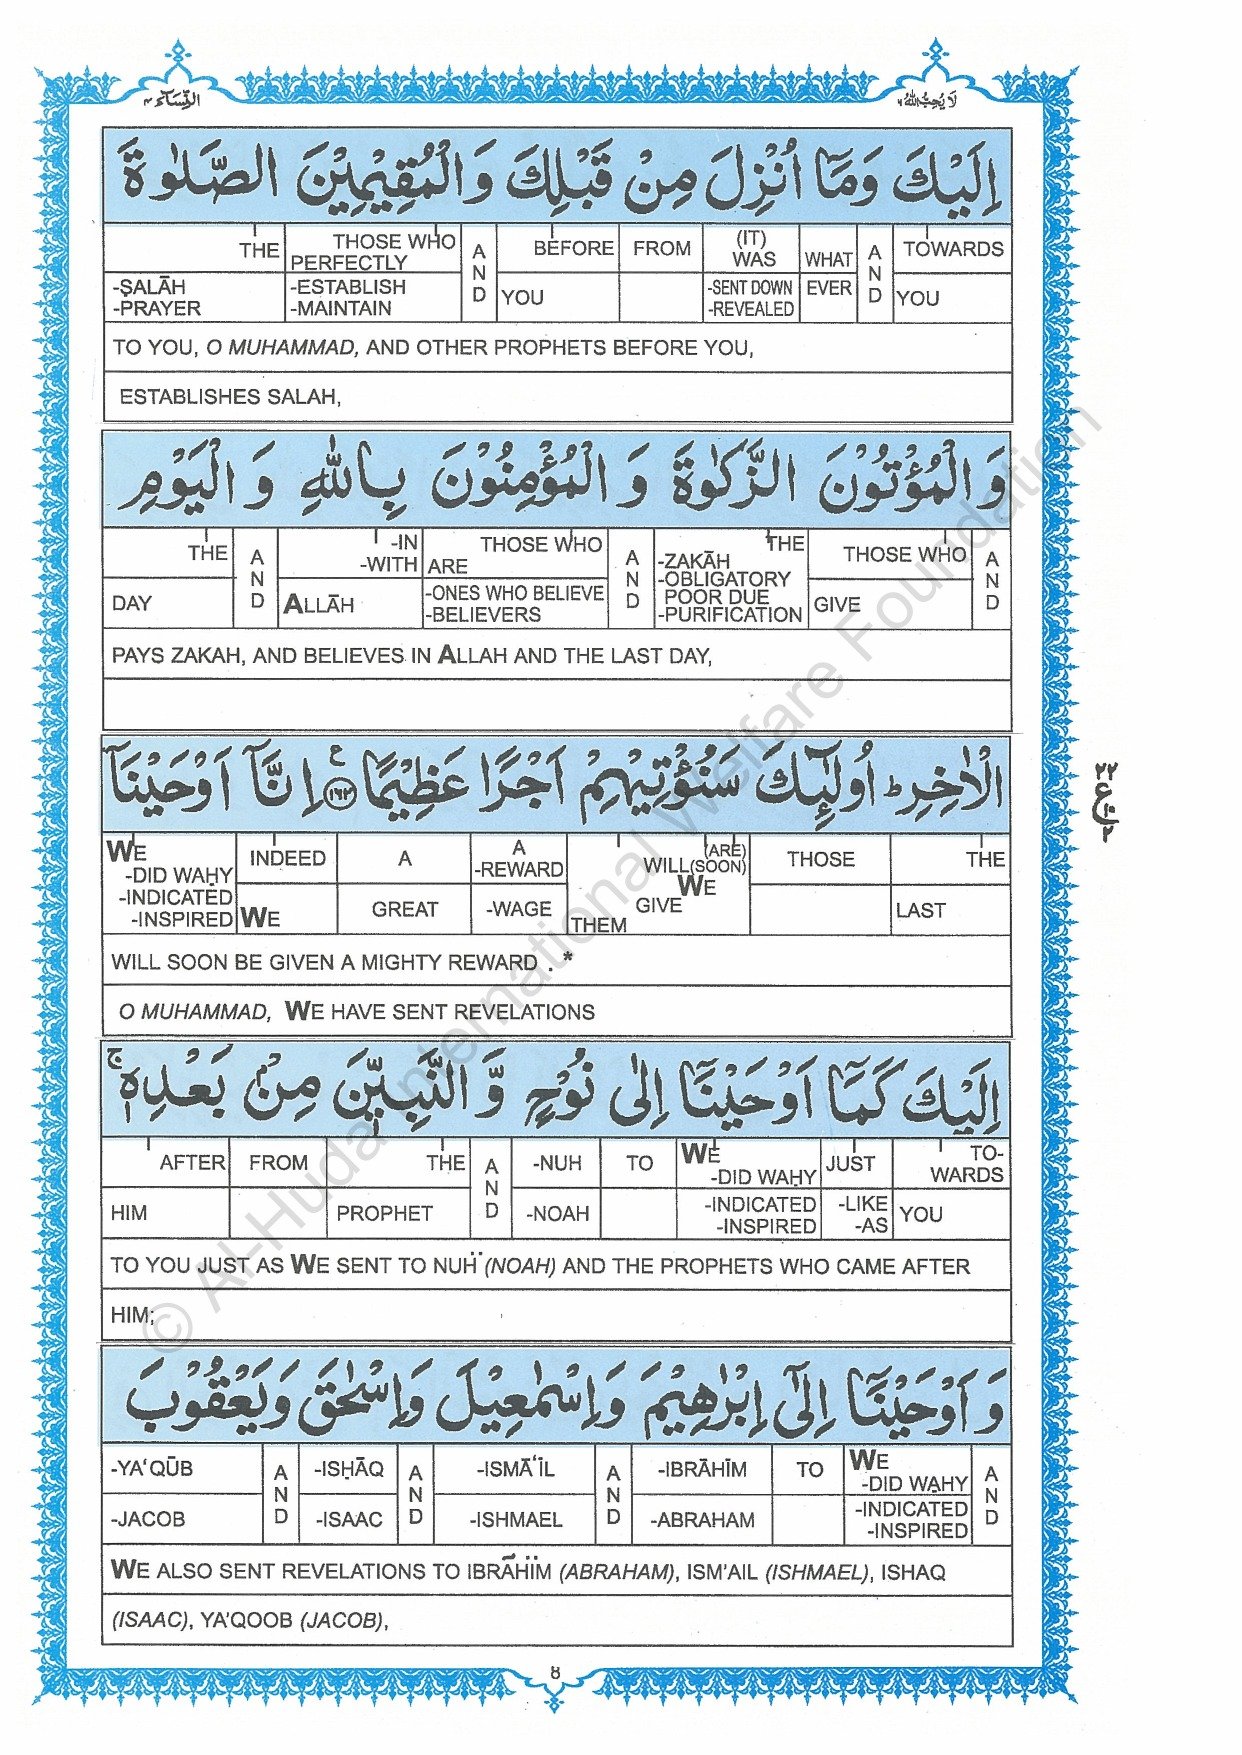 النِّسَآء ٤
لَا يُحِبُّ اللهُ ٦
اِلَيْكَ وَمَآ اُنْزِلَ مِنْ قَبْلِكَ وَالْمُقِيْمِيْنَ الصَّلٰوةَ
THE THOSE WHO PERFECTLY AND BEFORE FROM (IT) WAS WHAT AND TOWARDS
-ṢALĀH -PRAYER -ESTABLISH -MAINTAIN YOU -SENT DOWN -REVEALED EVER YOU
TO YOU, O MUHAMMAD, AND OTHER PROPHETS BEFORE YOU,
ESTABLISHES SALAH,
وَالْمُؤْتُوْنَ الزَّكٰوةَ وَالْمُؤْمِنُوْنَ بِاللّٰهِ وَالْيَوْمِ
THE AND -IN -WITH THOSE WHO ARE AND THE -ZAKĀH -OBLIGATORY POOR DUE -PURIFICATION THOSE WHO AND
DAY ALLĀH -ONES WHO BELIEVE -BELIEVERS GIVE
PAYS ZAKAH, AND BELIEVES IN ALLAH AND THE LAST DAY,
الْاٰخِرِ ؕ اُولٰٓئِكَ سَنُؤْتِيْهِمْ اَجْرًا عَظِيْمًا ۧ ١٦٢ اِنَّآ اَوْحَيْنَآ
WE -DID WAḤY INDEED A A -REWARD WILL (ARE) (SOON) THOSE THE
-INDICATED -INSPIRED WE GREAT -WAGE WE GIVE THEM LAST
WILL SOON BE GIVEN A MIGHTY REWARD . *
O MUHAMMAD, WE HAVE SENT REVELATIONS
٢٢ ع ٢
اِلَيْكَ كَمَآ اَوْحَيْنَآ اِلٰى نُوْحٍ وَّالنَّبِيّٖنَ مِنْۢ بَعْدِهٖ ۚ
AFTER FROM THE AND -NUH TO WE -DID WAḤY JUST TO-WARDS
HIM PROPHET -NOAH -INDICATED -INSPIRED -LIKE -AS YOU
TO YOU JUST AS WE SENT TO NUH (NOAH) AND THE PROPHETS WHO CAME AFTER
HIM;
وَاَوْحَيْنَآ اِلٰٓى اِبْرٰهِيْمَ وَاِسْمٰعِيْلَ وَاِسْحٰقَ وَيَعْقُوْبَ
-YA‘QŪB AND -ISḤĀQ AND -ISMĀ‘ĪL AND -IBRĀHĪM TO WE -DID WAḤY AND
-JACOB -ISAAC -ISHMAEL -ABRAHAM -INDICATED -INSPIRED
WE ALSO SENT REVELATIONS TO IBRĀHÏM (ABRAHAM), ISM'AIL (ISHMAEL), ISHAQ
(ISAAC), YA'QOOB (JACOB),
8
© Al-Huda International Welfare Foundation